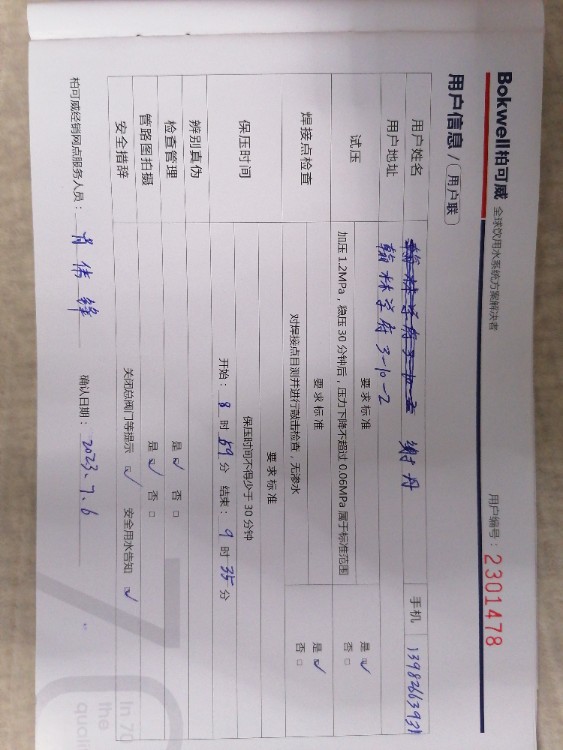 Bokwell柏可威 全球饮用水系统方案解决者
用户编号：2301478
用户信息 / 用户联
用户姓名 翰林学府3-10-2 谢丹 手机 13982663931
用户地址 翰林学府3-10-2
试压 要求标准
加压 1.2MPa，稳压 30 分钟后，压力下降不超过 0.06MPa 属于标准范围 是 ☑ 否 □
焊接点检查 要求标准
对焊接点目测并进行敲击检查，无渗水 是 ☑ 否 □
保压时间 要求标准
保压时间不得少于 30 分钟
开始：8 时 59 分 结束：9 时 35 分
辨别真伪
检查管理 是 ☑ 否 □
管路图拍摄 是 ☑ 否 □
安全措辞 关闭总阀门等提示 ☑ 安全用水告知 ☑
柏可威经销网点服务人员： 伟锋 确认日期：2023.7.6
In 70
the
quali